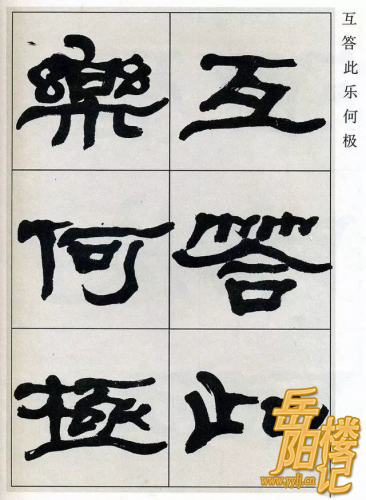 互答此
樂何極
互答此乐何极
岳阳楼记
www.yylj.cn